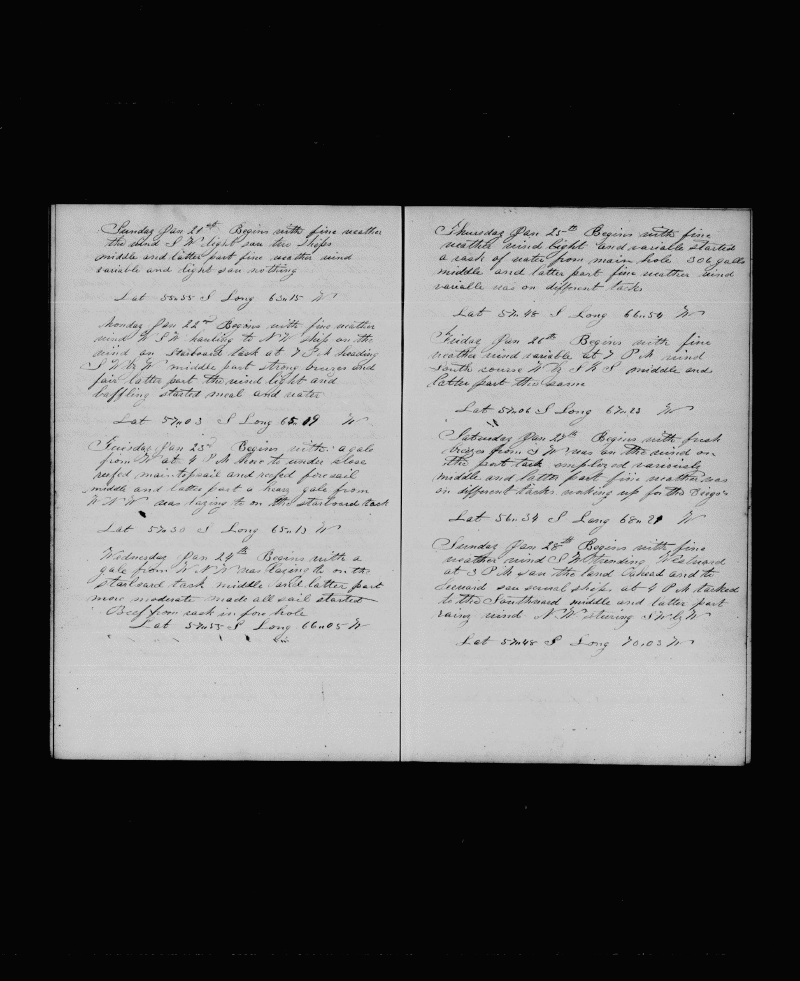 Sunday Jan 21st Begins with fine weather
the wind S W light saw two ships
middle and latter part fine weather wind
variable and light saw nothing
Lat 55"55 S Long 63"15 W
Monday Jan 22nd Begins with fine weather
wind W S W hauling to N W ship on the
wind on Starboard tack at 7 P M heading
S W by W middle part strong breezes and
fair latter part the wind light and
baffling started meal and water
Lat 57"03 S Long 65"09 W
Tuesday Jan 23rd Begins with a gale
from W at 4 P M hove to under close
reefed maintopsail and reefed foresail
middle and latter part a heavy gale from
W N W was laying to on the starboard tack
Lat 57"30 S Long 65"13 W
Wednesday Jan 24th Begins with a
gale from W N W was laying to on the
starboard tack middle and latter part
more moderate made all sail started
Beef from cask in fore hole
Lat 57"55 S Long 66"05 W
Thursday Jan 25th Begins with fine
weather wind light and variable started
a cask of water from main hole 306 galls
middle and latter part fine weather wind
variable was on different tacks
Lat 57"48 S Long 66"54 W
Friday Jan 26th Begins with fine
weather wind variable at 7 P M wind
South course W by S middle and
latter part the same
Lat 57"06 S Long 67"23 W
Saturday Jan 27th Begins with fresh
breezes from S W was on the wind on
the port tack employed variously
middle and latter part fine weather was
on different tacks working up for the Diego
Lat 56"34 S Long 68"21 W
Sunday Jan 28th Begins with fine
weather wind S W trending Westward
at 3 P M saw the land Ahead and to
Leeward saw several ships at 4 P M tacked
to the Southward middle and latter part
rainy wind N W steering S W by W
Lat 57"48 S Long 70"03 W